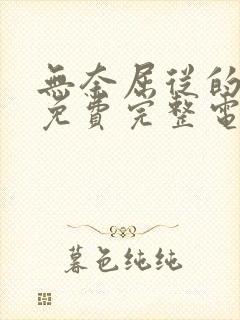 無奈屈從的
免費完整電
暮色纯纯